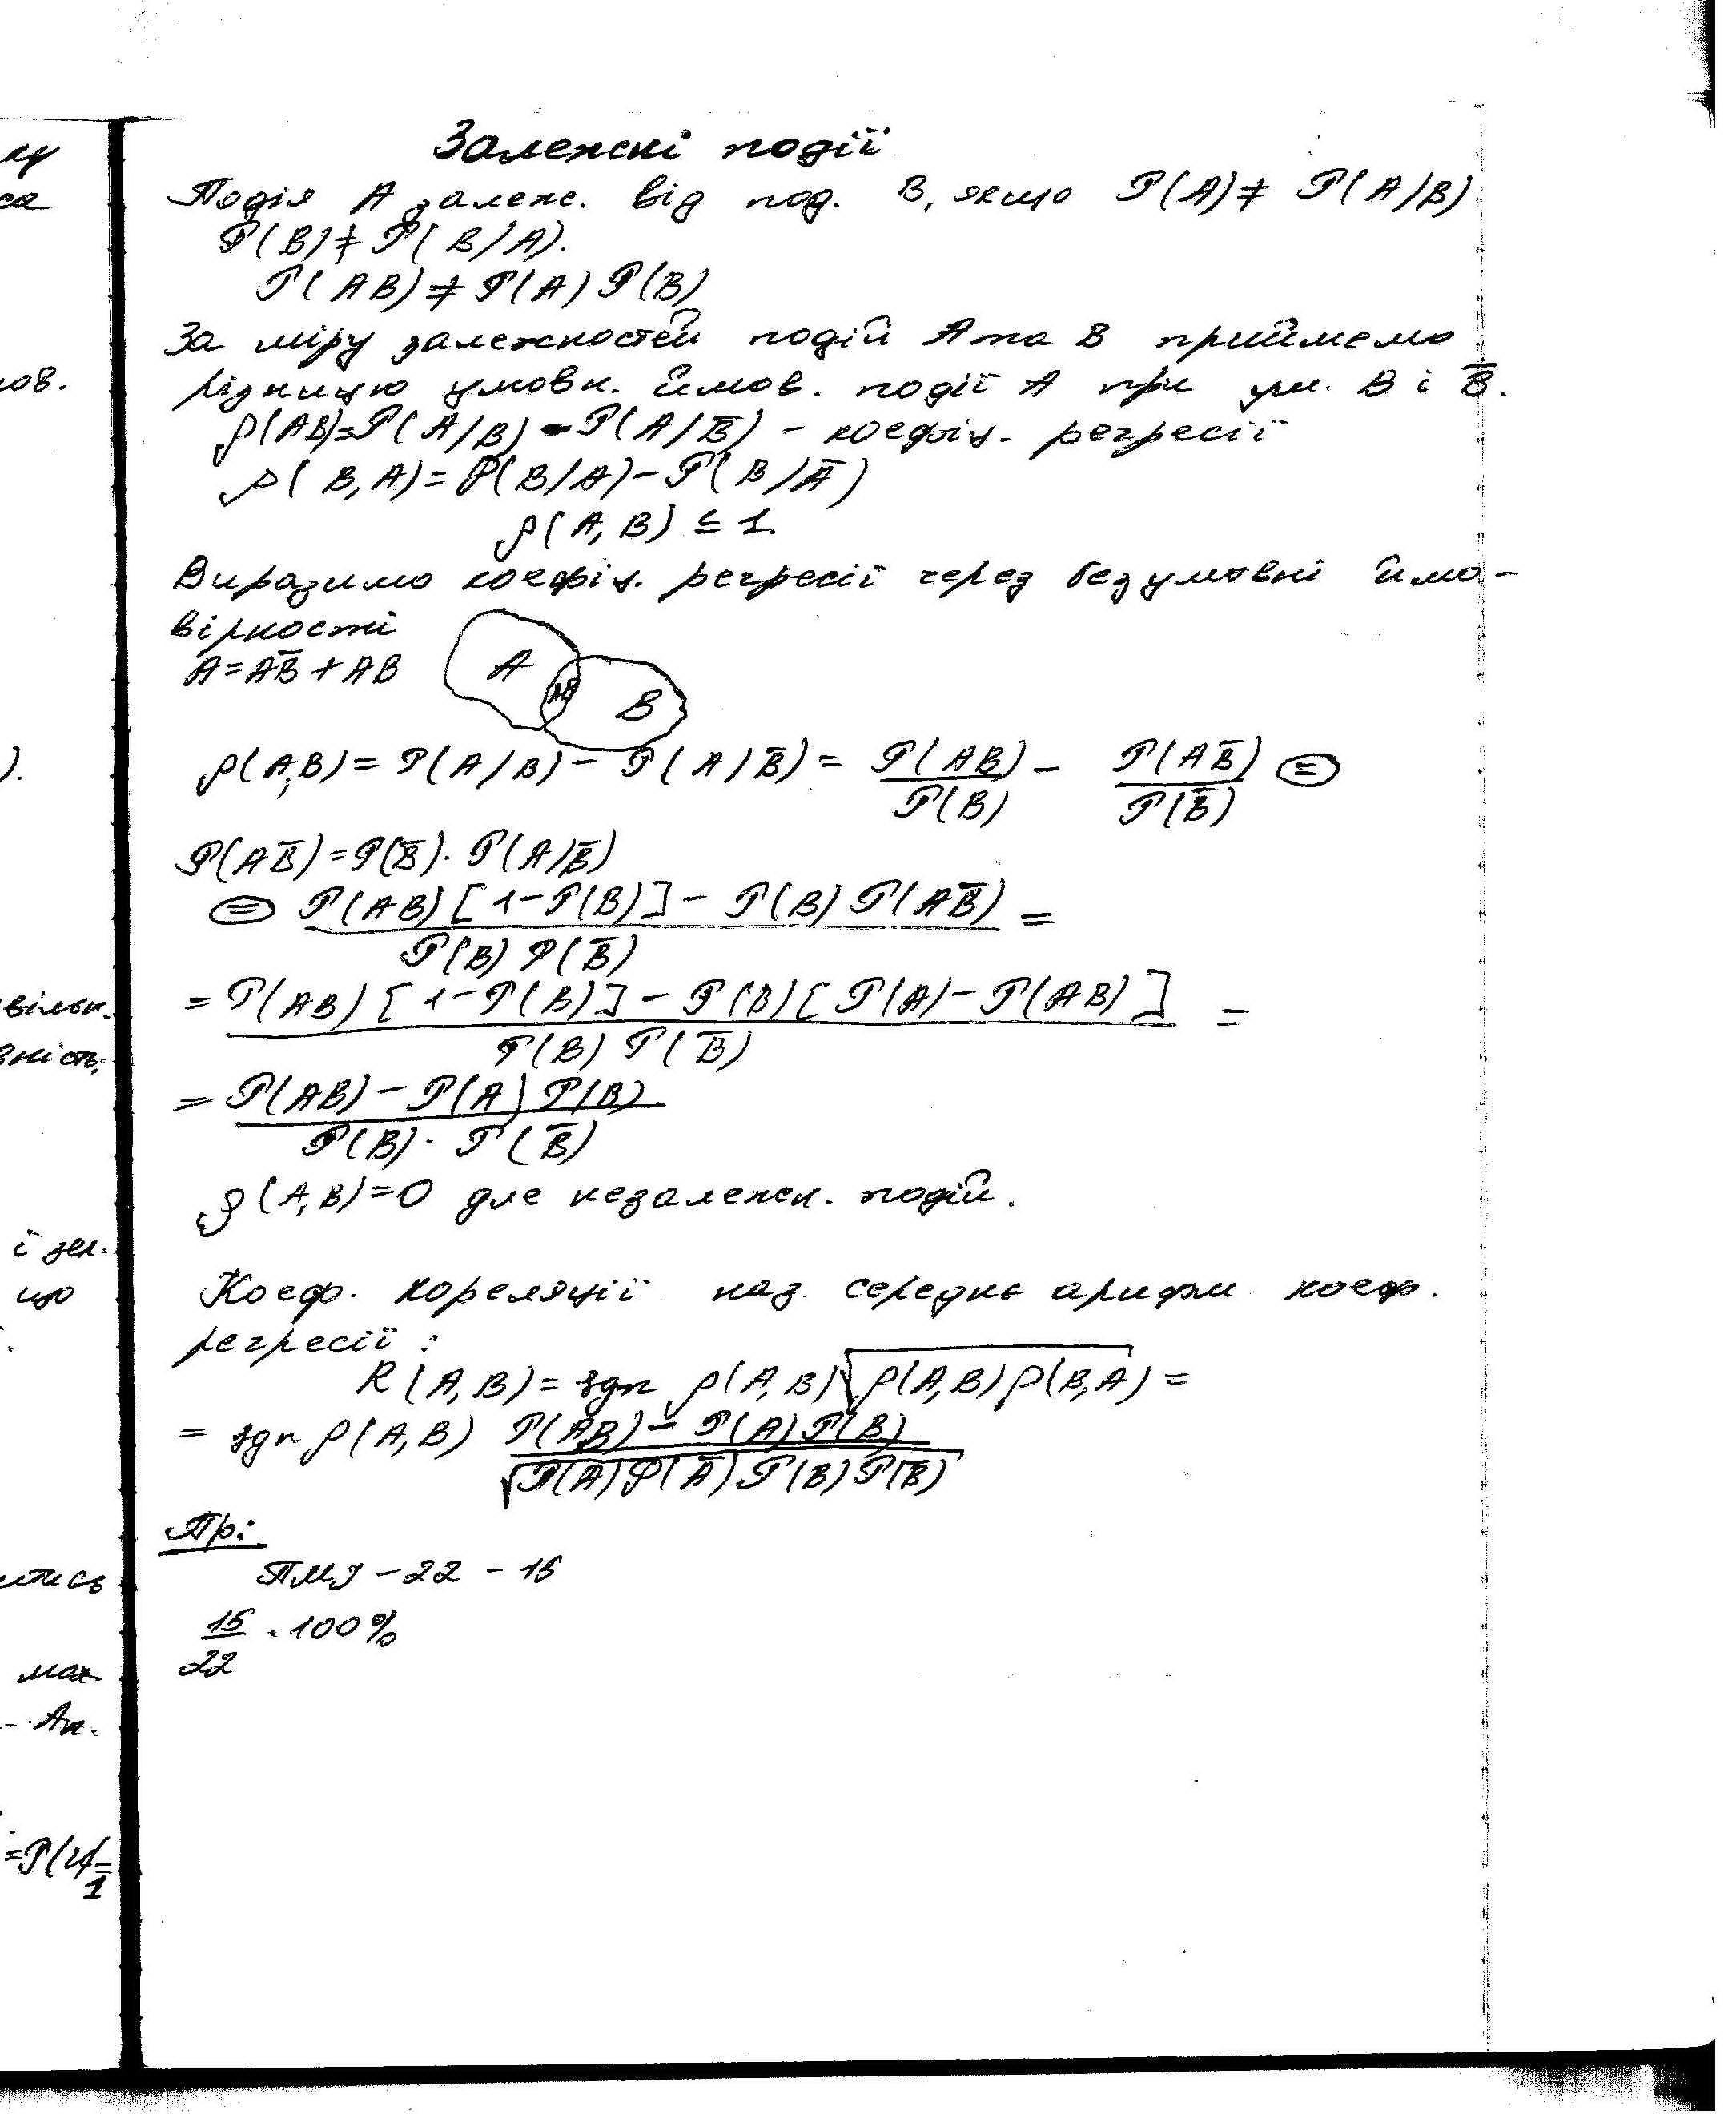 Залежні події
Подія А залеж. від под. В, якщо P(A) ≠ P(A/B)
P(B) ≠ P(B/A).
P(AB) ≠ P(A) P(B)
За міру залежностей подій А та В приймемо
різницю умовн. ймов. події А при ум. В і B̅.
ρ(AB)=P(A/B) - P(A/B̅) - коефіц. регресії
ρ(B,A) = P(B/A) - P(B/A̅)
ρ(A,B) ≤ 1.
Виразимо коефіц. регресії через безумовні ймо-
вірності
A = AB̅ + AB
A
AB
B
ρ(A,B) = P(A/B) - P(A/B̅) = P(AB)/P(B) - P(AB̅)/P(B̅) ⊜
P(AB̅) = P(B̅) · P(A/B̅)
⊜ P(AB)[1-P(B)] - P(B) P(AB̅) / P(B) P(B̅) =
= P(AB)[1-P(B)] - P(B)[P(A) - P(AB)] / P(B) P(B̅) =
= P(AB) - P(A) P(B) / P(B) · P(B̅)
ρ(A,B) = 0 для незалежн. подій.
Коеф. кореляції наз. середнє арифм. коеф.
регресії :
R(A,B) = sgn ρ(A,B) √ρ(A,B) ρ(B,A) =
= sgn ρ(A,B) P(AB) - P(A) P(B) / √P(A) P(A̅) P(B) P(B̅)
Пр:
- 22 - 15
15/22 · 100%
вільн.
вність:
що
max
= P(U) =
1